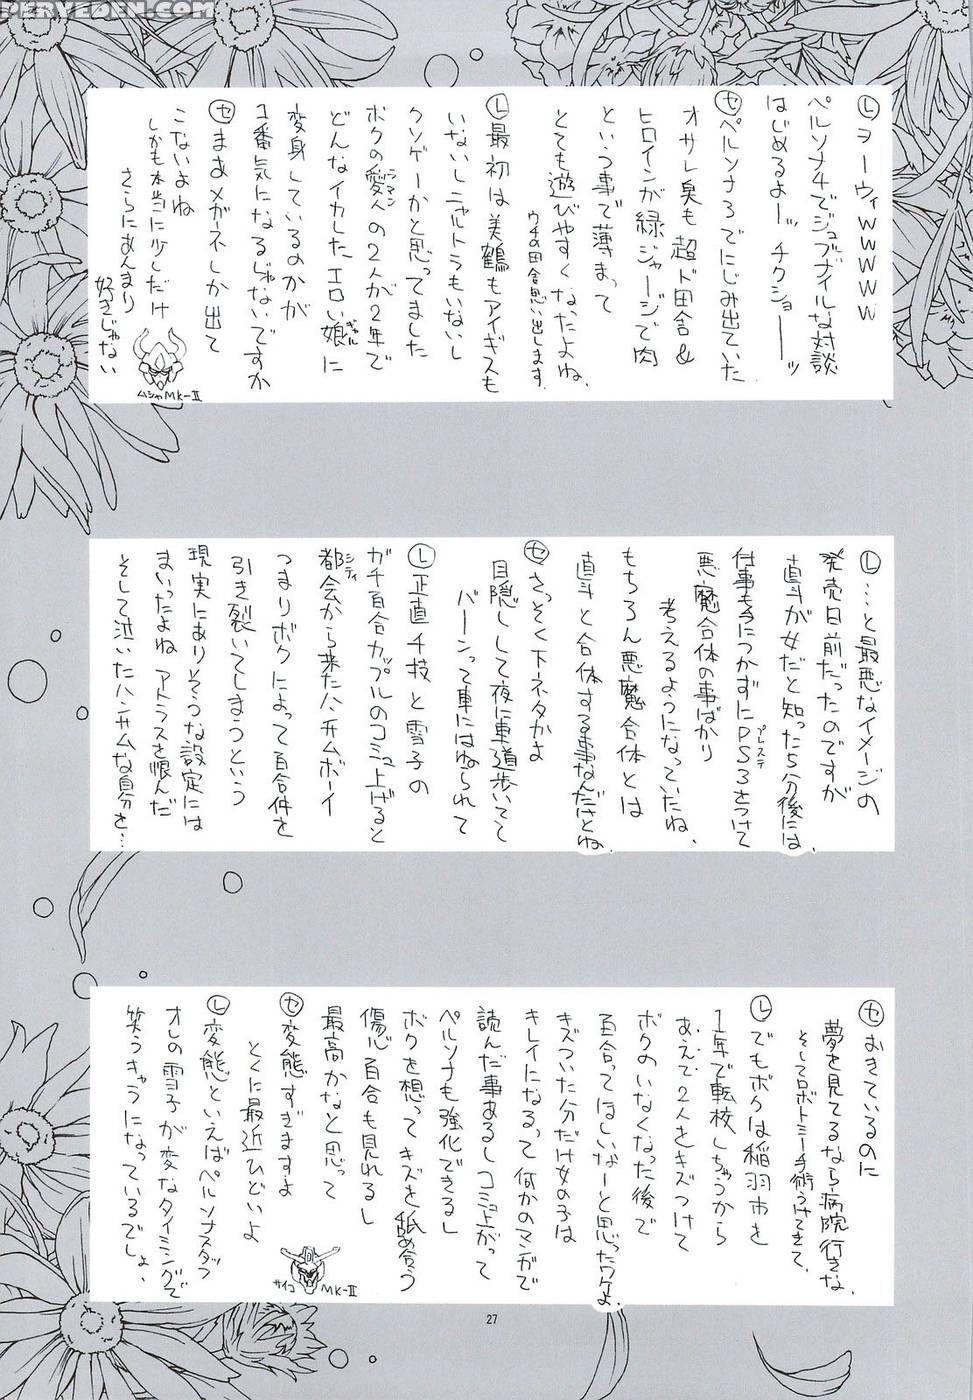 PERVEDEN.COM
Ⓛヲーウィwwwww
ペルソナ4でジュブナイルな対談
はじめるよーッ チクショーーッ
㋝ペルソナ3でにじみ出ていた
オサレ臭も超ド田舎&
ヒロインが緑ジャージで肉
という事で薄まって
とても遊びやすくなったよね。
ウチの田舎思い出します
Ⓛ最初は美鶴もアイギスも
いないしニャルトラもいないし
クソゲーかと思ってました
ボクの愛人の2人が2年で
ラマン
どんなイカしたエロい娘に
ギャル
変身しているのかが
1番気になるじゃないですか
㋝まあメガネしか出て
こないよね
しかも本当に少しだけ
さらにあんまり
好きじゃない
ムシャMK-II
Ⓛ…と最悪なイメージの
発売日前だったのですが
直斗が女だと知った5分後には、
仕事も手につかずにPS3をつけて
プレステ
悪魔合体の事ばかり
考えるようになっていたね、
もちろん悪魔合体とは
直斗と合体する事なんだけどね
㋝さっそく下ネタかよ
目隠しして夜に車道歩いてて
バーンって車にはねられて
Ⓛ正直千枝と雪子の
ガチ百合カップルのコミュ上げると
都会から来たハンサムボーイ
シティ
つまりボクによって百合仲を
引き裂いてしまうという
現実にありそうな設定には
まいったよね アトラスを恨んだ
そして泣いたハンサムな自分を…
㋝おきているのに
夢を見てるなら病院行きな
そしてロボトミー手術うけてきて、
Ⓛでもボクは稲羽市を
1年で転校しちゃうから
あえて2人をキズつけて
ボクのいなくなった後で
百合ってほしいなーと思ったワケよ
キズついた分だけ女の子は
キレイになるって何かのマンガで
読んだ事あるしコミュ上がって
ペルソナも強化できるし
ボクを想ってキズを舐め合う
傷心百合も見れるし
最高かなと思って
㋝変態すぎますよ
とくに最近ひどいよ
サイコMK-II
Ⓛ変態といえばペルソナスタッフ
オレの雪子が変なタイミングで
笑うキャラになっているでしょ、
27